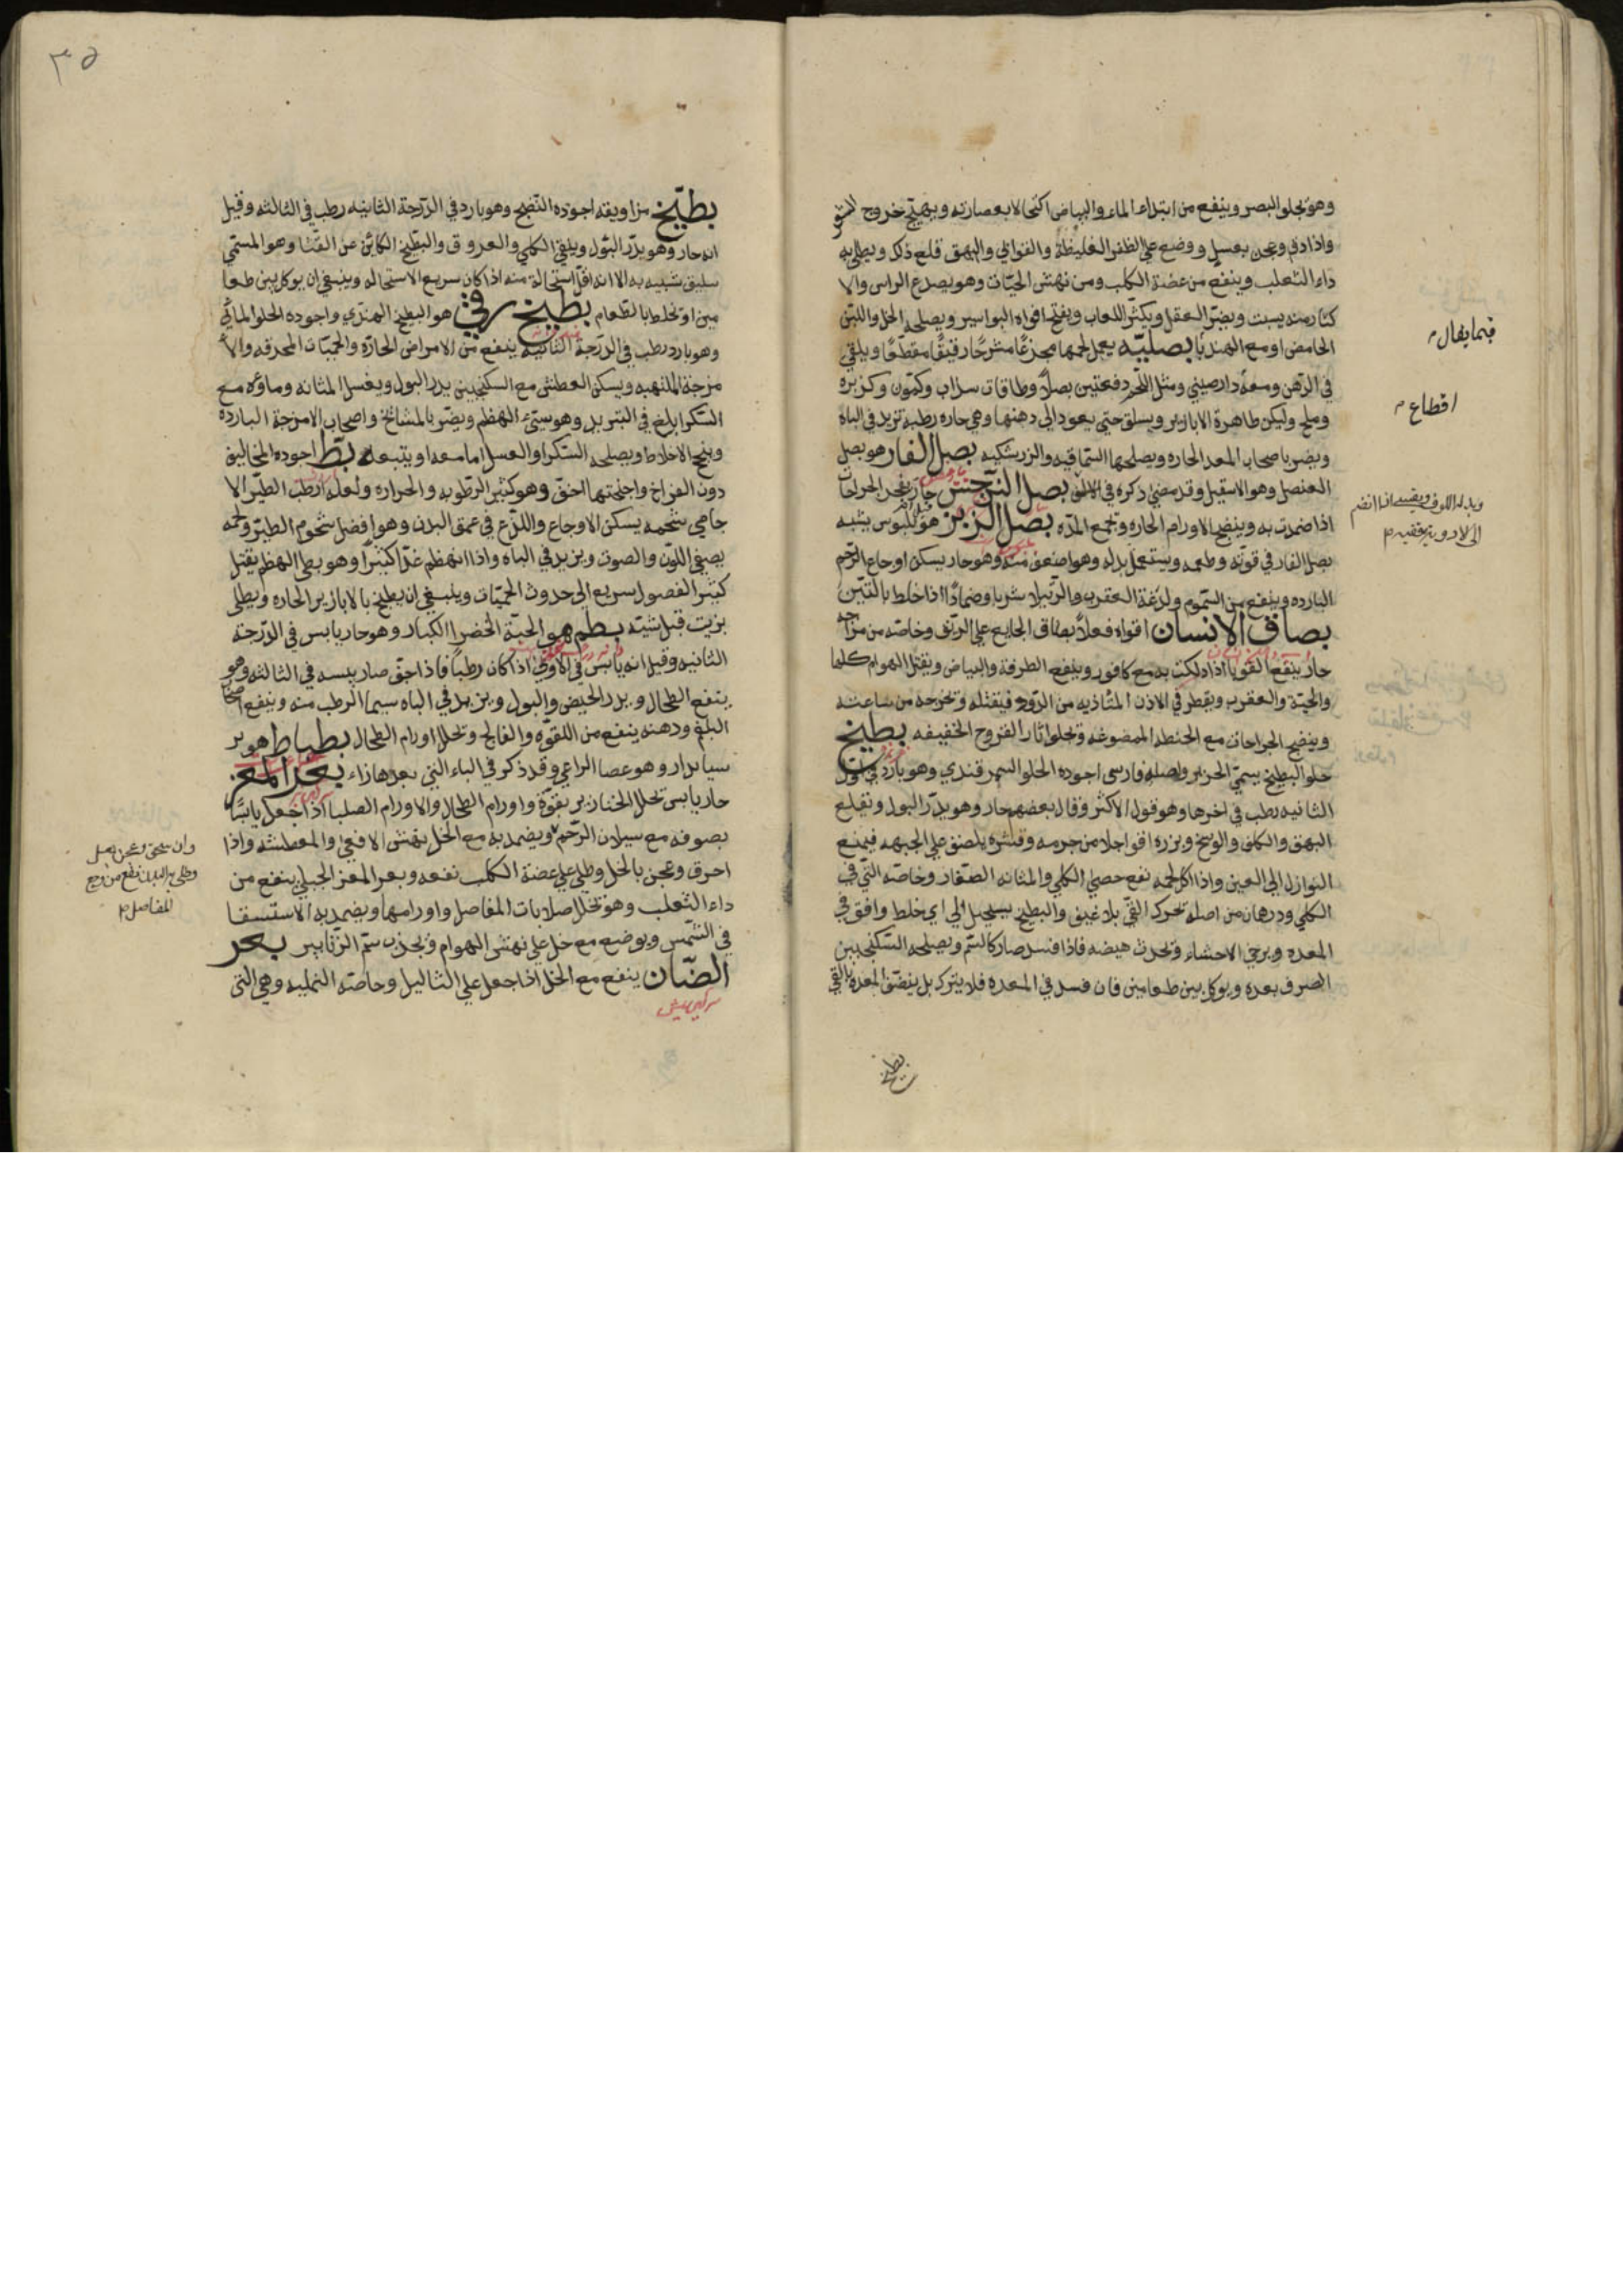 وهو يجلو البصر وينفع من ابتداء الماء والبياض اكتحالا بعصارته ويهيج خروج الشعر
واذا دق وعجن بعسل ووضع علي الظفر الغليظة والقوابي والبهق قلع ذلك ويطلي به
داء الثعلب وينفع من عضة الكلب ومن نهش الحيات وهو يصدع الراس والا
كثار منه يسبت ويضر العقل ويكثر اللعاب ويفتح افواه البواسير ويصلحه الخل واللبن
الحامض او مع الهندبا بصليه يعمل لحمها مجزعا مشرحا رقيقا مقطعا ويلقي
في الدهن ومعه دارصيني ومثل اللحم دفعتين بصلا وطاقات سذاب وكمون وكزبره
وملح وليكن ظاهرة الابازير ويسلق حتي يعود الي دهنها وهي حاره رطبة تزيد في الباه
ويضر باصحاب المعد الحاره ويصلحها السماقيه والزرشكيه بصل الفار هو بصل
العنصل وهو الاسقيل وقد مضي ذكره في الالف بصل النرجس حار يفجر الجراحات
اذا ضمدت به وينضج الاورام الحاره وتجمع المده بصل الزيز هو بلبوس يشبه
بصل الفار في قوته وطعمه ويستعمل بدله وهو اضعف منه وهو حار يسكن اوجاع الرحم
البارده وينفع من السموم ولدغة العقرب والرتيلا شربا وضمادا اذا خلط بالتين
بصاق الانسان اقواه فعلا بصاق الجايع علي الريق وخاصة من مزاجه
حار ينفع القوبا اذا دلكت به مع كافور وينفع الطرفة والبياض ويقتل الهوام كلها
والحية والعقرب ويقطر في الاذن المتاذيه من الدود فيقتله وتخرجه من ساعته
وينضج الجراحات مع الحنطه الممضوغه وتجلو اثار القروح الخفيفه بطيخ
حلو البطيخ يسمي الخربز واصله فارسي اجوده الحلو السمرقندي وهو بارد في اول
الثانيه رطب في اخرها وهو قول الاكثر وقال بعضهم حار وهو يدر البول وتقلع
البهق والكلف والوسخ وبزره اقوا جلا من جرمه وقشره يلصق علي الجبهه فيمنع
النوازل الي العين واذا اكل لحمه نفع حصي الكلي والمثانه الصغار وخاصة التي في
الكلي ودرهمان من اصله تحرك القي بلا عنف والبطيخ يستحيل الي اي خلط وافق في
المعده ويرخي الاحشاء وتحدث هيضه فاذا فسد صار كالسم ويصلحه السكنجبين
الصرف بعده ويوكل بين طعامين فان فسد في المعده فلا يترك بل ينقي المعده بالقي
بطيخ
فيما يقال
اقطاع
٣٥
بطيخ من اويقه اجوده النضيج وهو بارد في الدرجة الثانيه رطب في الثالثه وقيل
انه حار وهو يدر البول وينقي الكلي والعروق والبطيخ الكائن عن القثا وهو المسمي
شبيه به الا انه اقل استحالة منه اذا كان سريع الاستحاله وينبغي ان يوكل بين طعا
مين او تخلط بالطعام بطيخ رقي هو البطيخ الهندي واجوده الحلو المائي
وهو بارد رطب في الدرجة الثانيه ينفع من الامراض الحارة والحميات المحرقه والا
مزجة الملتهبه ويسكن العطش مع السكنجبين يدر البول ويغسل المثانه وماؤه مع
السكر ابلغ في التبريد وهو سيئ الهضم ويضر بالمشائخ واصحاب الامزجة البارده
الاخلاط ويصلحه السكر او العسل اما معه او يتبعه بط اجوده المخاليف
دون الفراخ واجنحتها اخف وهو كثير الرطوبه والحراره ولعله ارطب الطير الا
جامي شحمه يسكن الاوجاع واللذع في عمق البدن وهو افضل شحوم الطير ولحمه
يصفي اللون والصوت ويزيد في الباه واذا انهضم غذا كثيرا وهو بطي الهضم يقتل
كثير الفضول سريع الي حدوث الحميات وينبغي ان يطبخ بالابازير الحاره ويطلي
بزيت قبل شيه بطم هو الحبة الخضرا الكبار وهو حار يابس في الدرجة
الثانيه وقيل انه يابس في الاولي اذا كان رطبا فاذا جف صار يبسه في الثالثه وهو
ينفع الطحال ويدر الحيض والبول ويزيد في الباه سيما الرطب منه وينفع اصحاب
البلغم ودهنه ينفع من اللقوه والفالج وتحلل اورام الطحال بطباط هو بر
سيا بدار وهو عصا الراعي وقد ذكر في الباء التي بعدها زاء بعر المعز
حار يابس تحلل الخنازير بقوة واورام الطحال والاورام الصلبا اذا جعل يابسا
بصوفه مع سيلان الرحم ويضمد به مع الخل بنهش الافعي والمعطشه واذا
احرق وعجن بالخل وطلي علي عضة الكلب نفعه وبعر المعز الجبلي ينفع من
داء الثعلب وهو تحلل صلابات المفاصل واورامها ويضمد به الاستسقا
في الشمس ويوضع مع خل علي نهش الهوام وتجذب سم الزنابير بعر
الضان ينفع مع الخل اذا جعل علي الثاليل وخاصة النمليه وهي التي
وان سحق وعجن بعسل
وطلي به البدن نفع من وجع
المفاصل